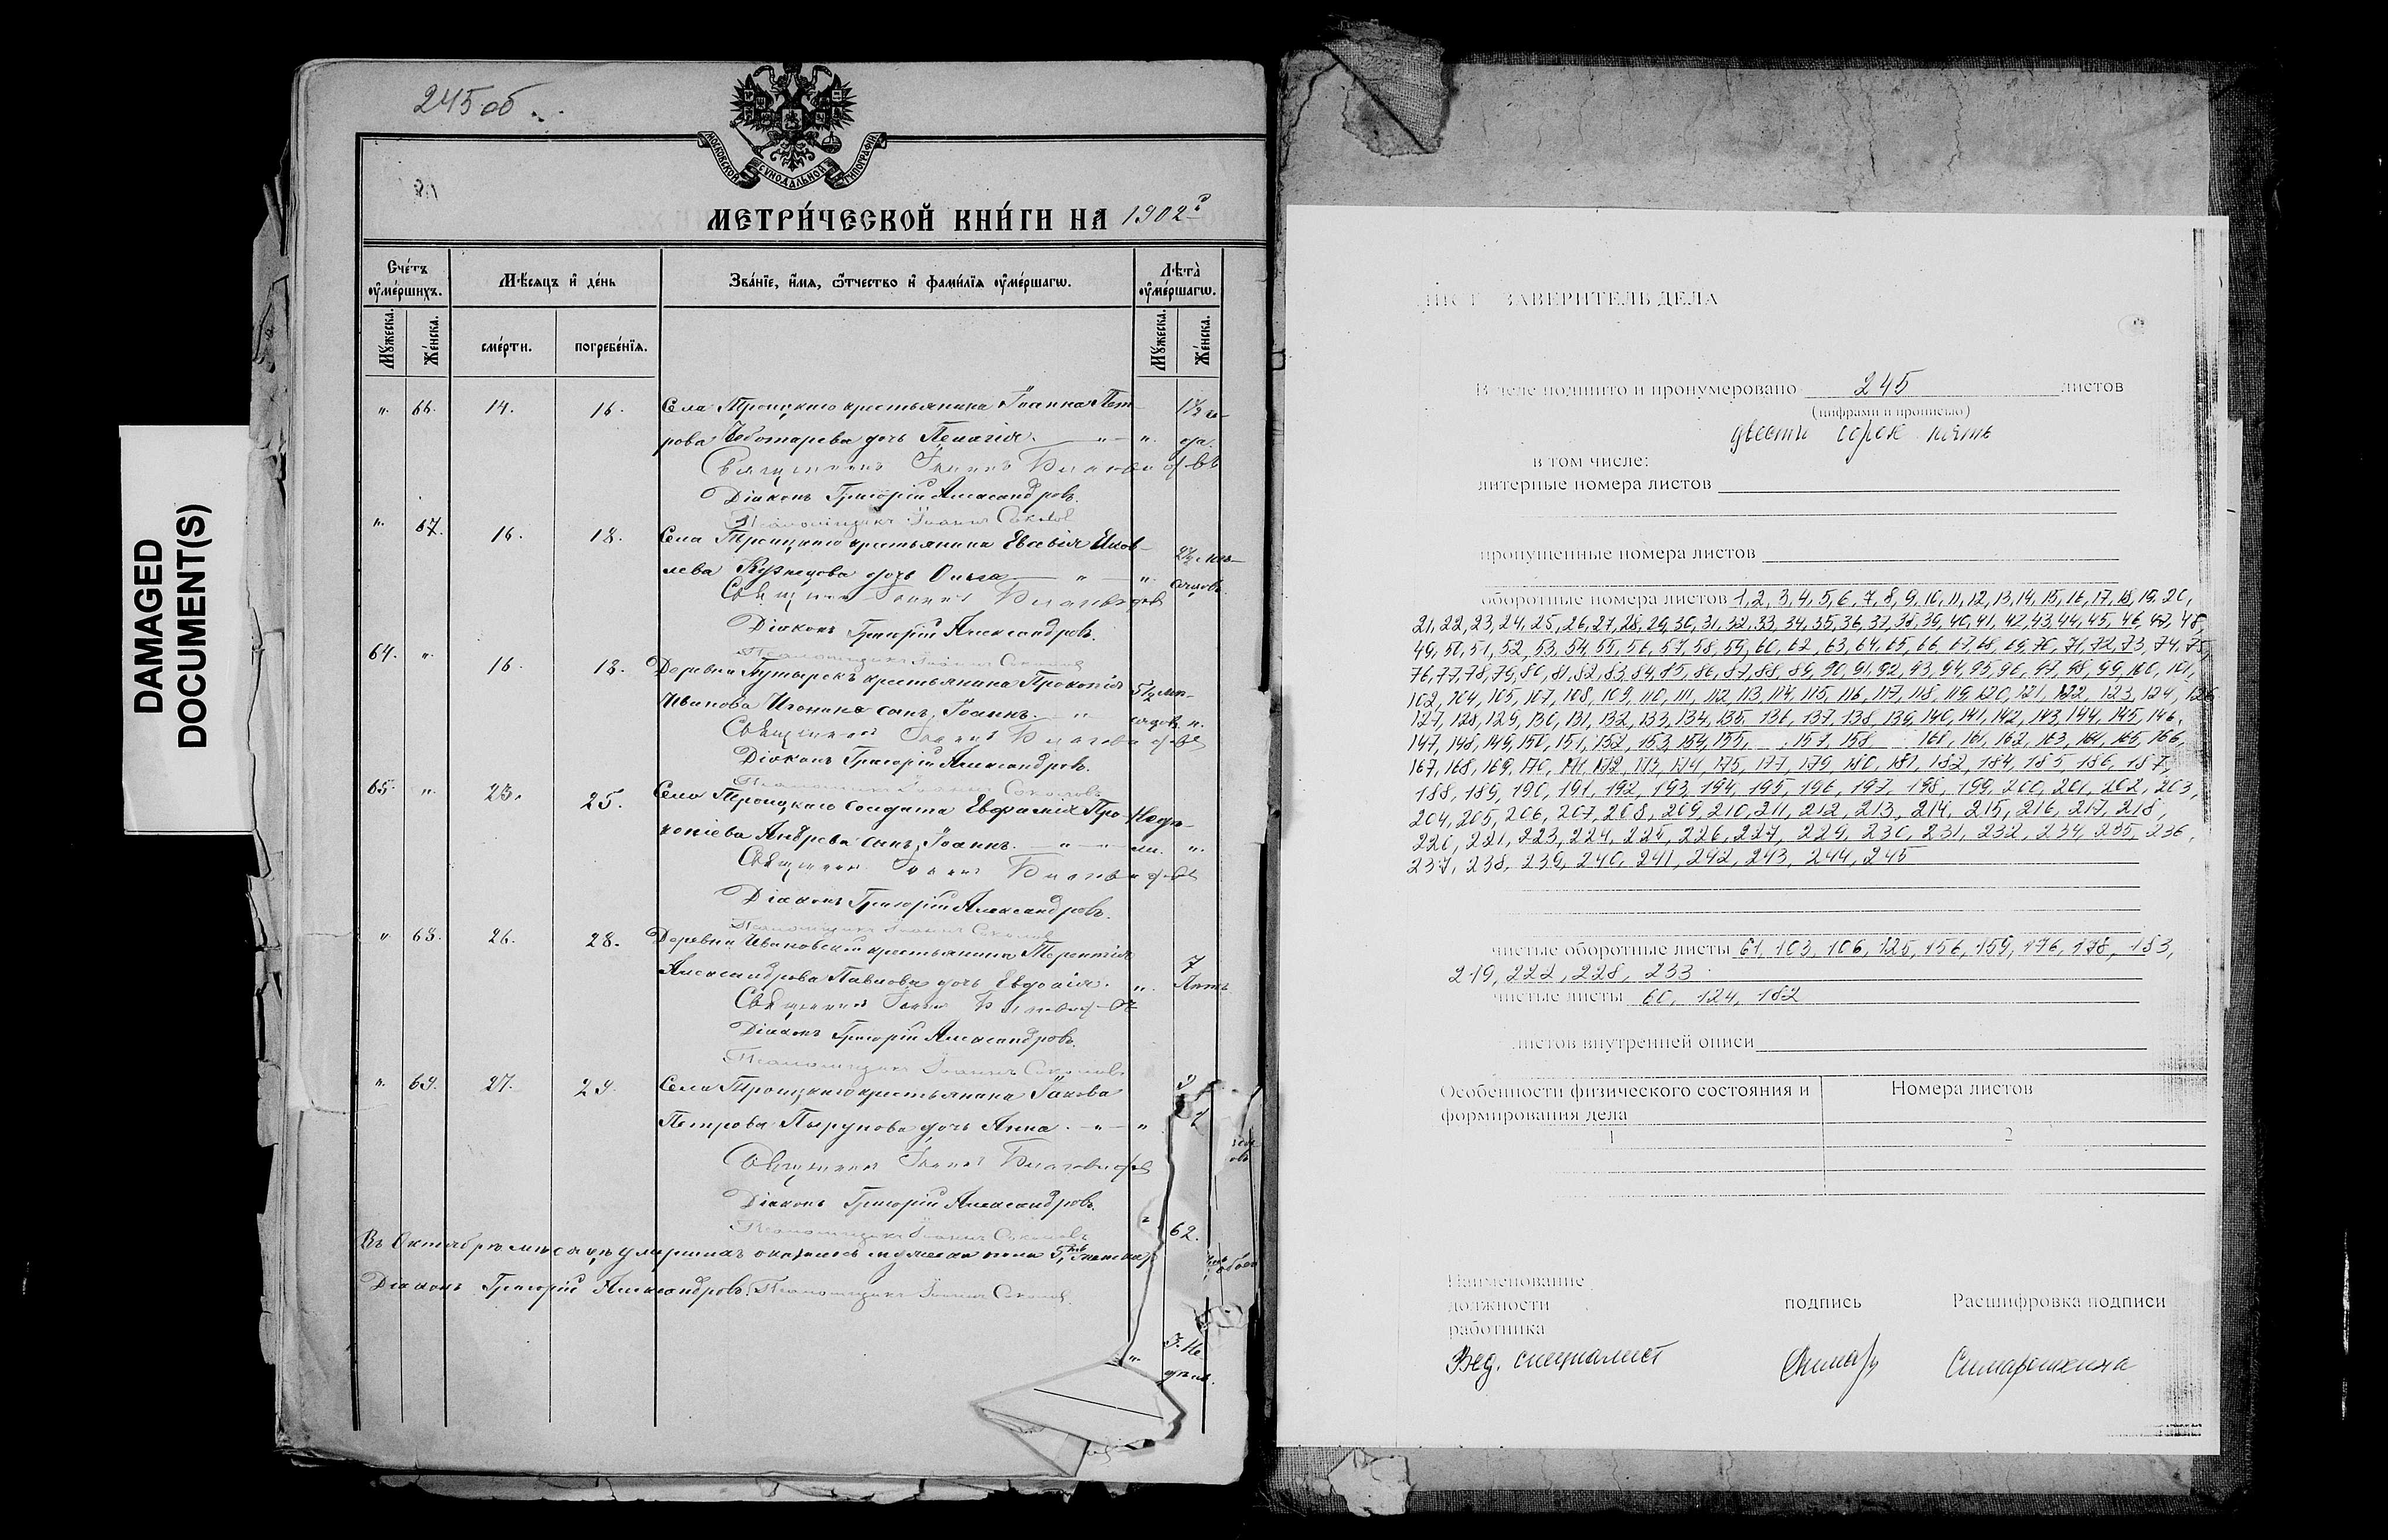 DAMAGED
DOCUMENT(S)
245 об.
МОСКОВСКОЙ СѴНОДАЛЬНОЙ ТИПОГРАФІИ
МЕТРИ́ЧЕСКОЙ КНИ́ГИ НА 1902 г
Сче́тъ ᲂу҆ме́ршихъ.
Мѣ́сяцъ и҆ де́нь
Зва́нїе, и҆́мѧ, ѻ҆́тчество и҆ фами́лїѧ ᲂу҆ме́ршагѡ.
Лѣта̀ ᲂу҆ме́ршагѡ.
Мꙋ́жеска.
Же́нска.
сме́рти.
погребе́нїѧ.
Мꙋ́жеска.
Же́нска.
". 66. 14. 16. Села Троицкаго крестьянина Іоанна Пет- 1½ го-
рова Чеботарева дочь Пелагія. — " — ". да.
Священникъ Іоаннъ
Діаконъ Григорій Александровъ.
Псаломщикъ Іоаннъ Соколов
". 67. 16. 18. Села Троицкаго крестьянина Евсевія Яков- 2½ мѣ-
лева Кузнецова дочь Ольга — " — ". сяцовъ.
Священникъ Іоаннъ
Діаконъ Григорій Александровъ.
Псаломщикъ Іоаннъ Соколовъ
64. ". 16. 18. Деревни Бутырекъ крестьянина Прокопія 5½ мѣ-
Иванова сынъ Іоаннъ. — " сяцов. ".
Священникъ Іоаннъ
Діаконъ Григорій Александровъ.
Псаломщикъ Іоаннъ Соколовъ
65. ". 23. 25. Села Троицкаго солдата Про-
копіева Андрева сынъ Іоаннъ. — " — ли. ".
Священникъ Іоаннъ
Діаконъ Григорій Александровъ.
Псаломщикъ Іоаннъ Соколов
". 68. 26. 28. Деревни Ивановской крестьянина Терентія 7
Александрова Павлова дочь Евдокія. ". Лѣтъ
Священникъ Іоаннъ
Діаконъ Григорій Александровъ.
Псаломщикъ Іоаннъ Соколовъ
". 69. 27. 29. Села Троицкаго крестьянина Іакова
Петрова дочь Анна. — " — "
Священникъ Іоаннъ
Діаконъ Григорій Александровъ.
Псаломщикъ Іоаннъ Соколовъ
62.
Въ Октябрѣ мѣсяцѣ умершихъ
Діаконъ Григорій Александровъ. Псаломщикъ Іоаннъ Соколов.
ЛИСТ - ЗАВЕРИТЕЛЬ ДЕЛА
В деле подшито и пронумеровано 245 листов
(цифрами и прописью)
двести сорок пять
в том числе:
литерные номера листов
пропущенные номера листов
оборотные номера листов 1, 2, 3, 4, 5, 6, 7, 8, 9, 10, 11, 12, 13, 14, 15, 16, 17, 18, 19, 20,
21, 22, 23, 24, 25, 26, 27, 28, 29, 30, 31, 32, 33, 34, 35, 36, 37, 38, 39, 40, 41, 42, 43, 44, 45, 46, 47, 48,
49, 50, 51, 52, 53, 54, 55, 56, 57, 58, 59, 60, 62, 63, 64, 65, 66, 67, 68, 69, 70, 71, 72, 73, 74, 75,
76, 77, 78, 79, 80, 81, 82, 83, 84, 85, 86, 87, 88, 89, 90, 91, 92, 93, 94, 95, 96, 97, 98, 99, 100, 101,
102, 104, 105, 107, 108, 109, 110, 111, 112, 113, 114, 115, 116, 117, 118, 119, 120, 121, 122, 123, 124, 126
127, 128, 129, 130, 131, 132, 133, 134, 135, 136, 137, 138, 139, 140, 141, 142, 143, 144, 145, 146,
147, 148, 149, 150, 151, 152, 153, 154, 155, 157, 158 160, 161, 162, 163, 164, 165, 166,
167, 168, 169, 170, 171, 172, 173, 174, 175, 177, 179, 180, 181, 182, 184, 185, 186, 187,
188, 189, 190, 191, 192, 193, 194, 195, 196, 197, 198, 199, 200, 201, 202, 203,
204, 205, 206, 207, 208, 209, 210, 211, 212, 213, 214, 215, 216, 217, 218,
220, 221, 223, 224, 225, 226, 227, 229, 230, 231, 232, 234, 235, 236,
237, 238, 239, 240, 241, 242, 243, 244, 245
чистые оборотные листы 61, 103, 106, 125, 156, 159, 176, 178, 183,
219, 222, 228, 233.
чистые листы 60, 124, 182
листов внутренней описи
Особенности физического состояния и Номера листов
формирования дела
1 2
Наименование
должности подпись Расшифровка подписи
работника
Вед. специалист